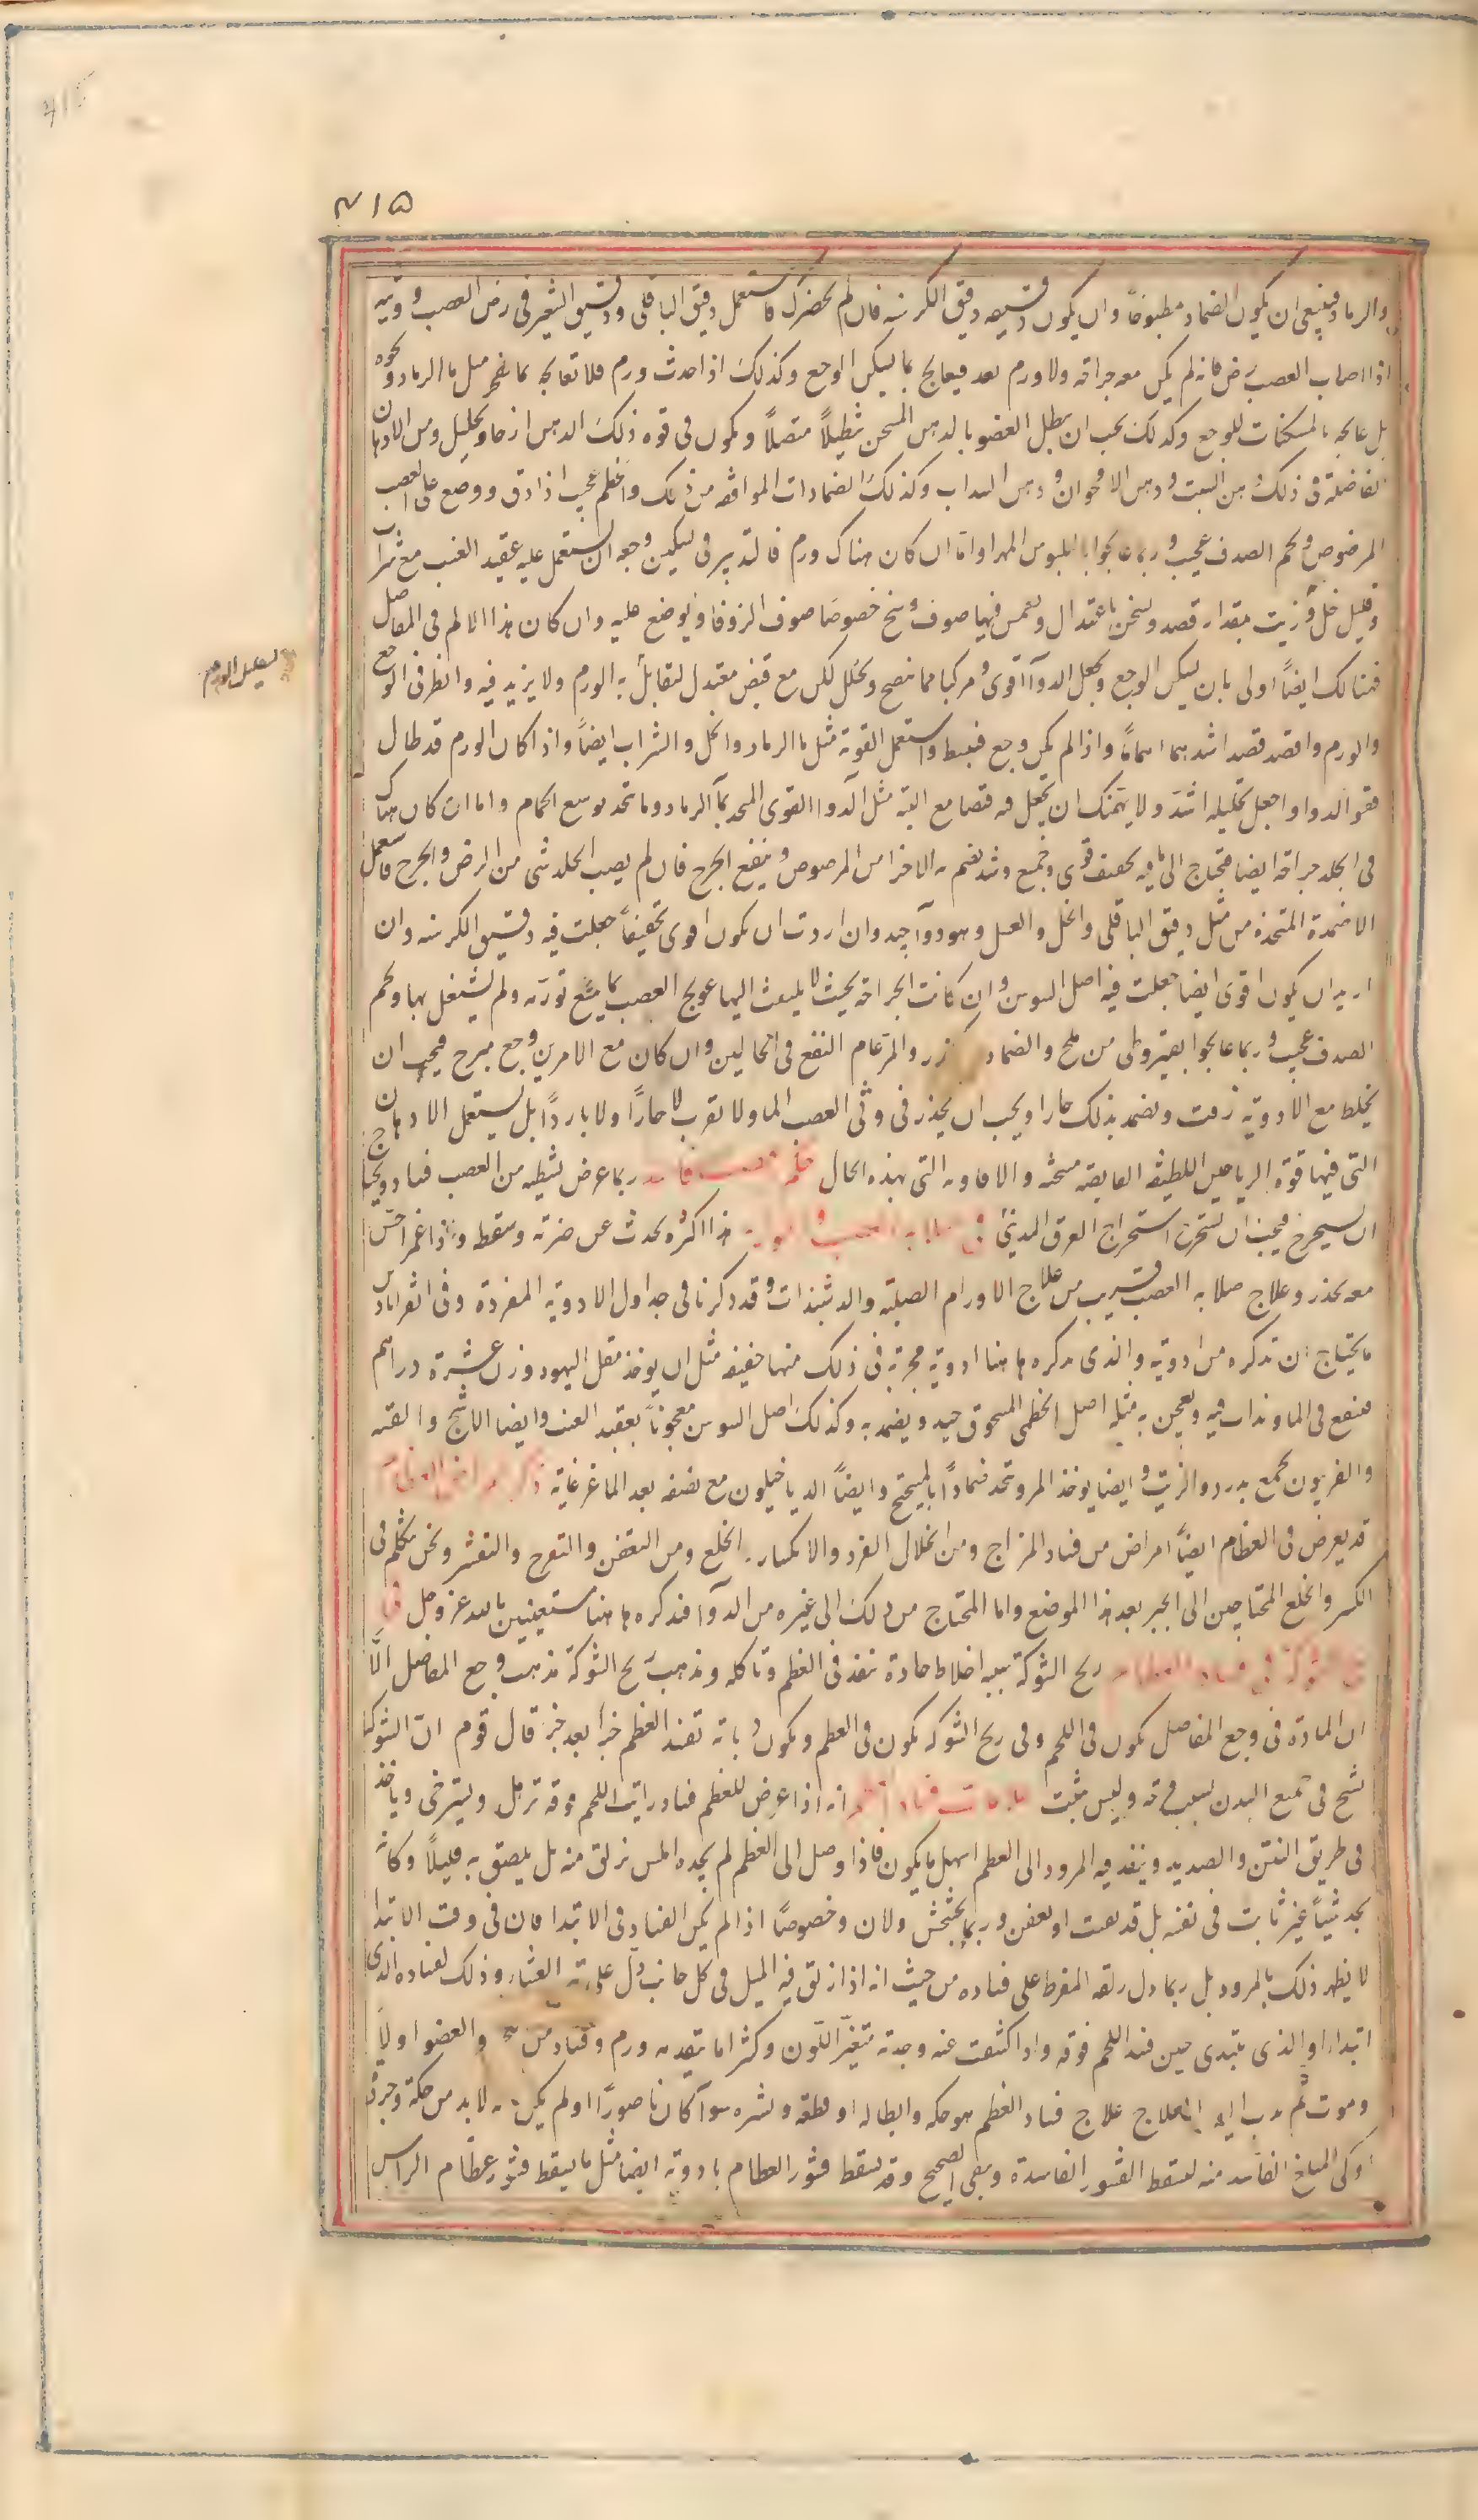 ٤١٥
والرماد فينبغي ان يكون الضماد مطبوخاً وان يكون دقيقه دقيق الكرسنه فان لم يحضرك فاستعمل دقيق الباقلى ودقيق الشعير في رض العصب ووثيه
اذا اصاب العصب رض فانه لم يكن معه جراحة ولا ورم بعد فيعالج بما يسكن الوجع وكذلك اذا حدث ورم فلا تعالجه بما يفجر مثل ماء الرماد ونحوه
بل عالجه بالمسكنات للوجع وكذلك يجب ان ينطل العضو بالدهن المسخن تنطيلاً متصلاً ويكون في قوة ذلك الدهن ارخاء وتحليل ومن الادهان
الفاضلة في ذلك دهن الشبت ودهن الاقحوان ودهن السداب وكذلك الضمادات الموافقه من ذلك والخطمي عجيب اذا دق ووضع على العصب
المرضوض ولحم الصدف عجيب وربما عالجوا بالبلبوس المهرا واما ان كان هناك ورم فالتدبير في تسكين وجعه ان يستعمل عليه عقيد العنب مع شراب
وقليل خل وزيت بمقدار قصد ويسخن باعتدال ويغمس فيها صوف وسخ خصوصا صوف الزوفا ويوضع عليه وان كان هذا الالم في المفاصل
فهنالك ايضاً اولى بان يسكن الوجع ويجعل الدواء اقوى ومركبا مما ينضج ويحلل لكن مع قبض معتدل لتقابل به الورم ولا يزيد فيه وانظر في الوجع
والورم واقصد قصد اشدهما اهماما واذا لم يكن وجع فبسط واستعمل القوية مثل ماء الرماد والخل والشراب ايضاً واذا كان الورم قد طال
فقو الدواء واجعل تحليله اشد ولا يهمنك ان تجعل فيه قبضا مع البته مثل الدواء القوي المتخذ بماء الرماد وما يتخذ بوسخ الحمام واما ان كان هناك
في الجلد جراحة ايضا فيحتاج الى ما فيه تجفيف قوي وجمع وشد يضم به الاجزا من المرضوض وينفع الجرح فان لم يصب الجلد شي من الرض والجرح فاستعمل
الاضمدة المتخذة من مثل دقيق الباقلى والخل والعسل وهو دواء جيد وان اردت ان يكون اقوى تجفيفاً جعلت فيه دقيق الكرسنه وان
اريد ان يكون اقوى ايضا جعلت فيه اصل السوسن وان كانت الجراحة بحيث لا يلتفت اليها عولج العصب بما يمنع تورمه ولم يشتغل بها ولحم
الصدف عجيب وربما عالجوا بقيروطي من ملح والضماد والمر عام النفع في الحالين وان كان مع الامرين وجع مبرح فيجب ان
يخلط مع الادوية زفت ويضمد بذلك حارا ويجب ان يحذر في وثي العصب الماء ولا تقرب لا حاراً ولا بارداً بل يستعمل الادهان
التي فيها قوة الرياحين اللطيفه القابضه مسخنه والافاويه التي بهذه الحال ربما عرض لشظيه من العصب فساد ويحتاج
ان يستخرج فيجب ان تستخرج استخراج العرق المديني في صلابة العصب هذا اكثره يحدث عن ضربة وسقطه واذا غمز احس
معه بخدر وعلاج صلابة العصب قريب من علاج الاورام الصلبة والدشبذات وقد ذكرنا في جداول الادوية المفردة وفي القراباذين
ما يحتاج ان تذكره من ادوية والذي نذكره هاهنا ادوية مجربة في ذلك منها خفيفه مثل ان يوخذ مقل اليهود وزن عشرة دراهم
فينقع في الماء ويذاب فيه ويعجن به مثله اصل الخطمي المسحوق جيد ويضمد به وكذلك اصل السوسن معجوناً بعقيد العنب وايضا الاشج والقنه
والفربيون يجمع بدردي الزيت وايضا يوخذ المر ويتخذ ضماداً بالميبختج وايضاً الدياخيلون مع نصفه بعد الماء غرغاية ذكر امراض العظام
قد يعرض في العظام ايضاً امراض من فساد المزاج ومن انحلال الفرد والانكسار والخلع ومن التعفن والتقرح والتقشر ونحن نتكلم في
الكسر والخلع المحتاجين الى الجبر بعد هذا الموضع واما المحتاج من ذلك الى غيره من الدواء فنذكره هاهنا مستعينين بالله عز وجل في
ريح الشوكة في فساد العظام ريح الشوكة سببه اخلاط حادة تنفذ في العظم وتاكله ومذهب ريح الشوكة مذهب وجع المفاصل الا
ان المادة في وجع المفاصل تكون في اللحم وفي ريح الشوكة تكون في العظم ويكون دبابة تفسد العظم جزا بعد جز قال قوم ان الشوكة
تسنح في جميع البدن وليس بثبت علامات فساد العظم انه اذا عرض للعظم فساد رايت اللحم فوقه ترهل ويسترخي وياخذ
في طريق النتن والصديد وينفذ فيه المرود الى العظم اسهل ما يكون فاذا وصل الى العظم لم يجده املس يزلق منه بل يلصق به قليلاً وكانه
يجد شيئاً غير ثابت في نفسه بل قد تفتت او تعفن وربما تخشخش ولان وخصوصاً اذا لم يكن الفساد في الابتدا فان في وقت الابتدا
لا يظهر ذلك بالمرود بل ربما دل زلقه المفرط على فساده من حيث انه اذا زلق فيه الميل في كل جانب دل على تبرية الغشا وذلك لفساده الذي
ابتداء او الذي يبتدي حين فسد اللحم فوقه واذا كشفت عنه وجدته متغير اللون وكثيرا ما يتقدمه ورم وفساد من والعضو اولا
وموت ثم يدب اليه العلاج علاج فساد العظم هو حكه وابطاله او قطعه ونشره سواء كان ناصوراً او لم يكن لابد من حكه وجرده
او كي المبلغ الفاسد منه ليسقط القشور الفاسدة ويبقى الصحيح وقد يسقط قشور العظام بادوية ايضا مثل ما يسقط قشور عظام الراس